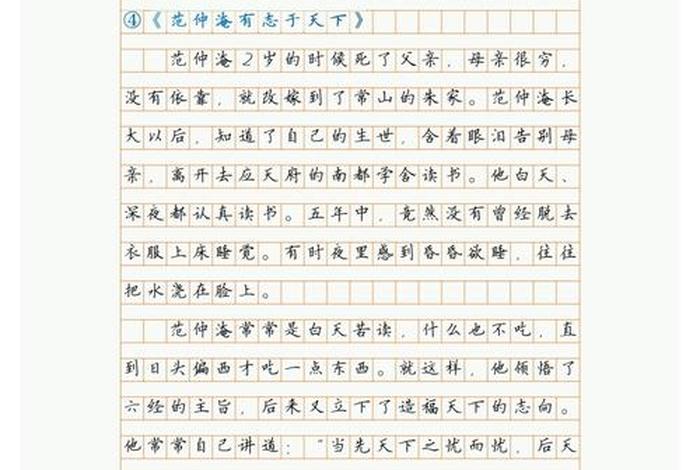 ④《范仲淹有志于天下》
范仲淹2岁的时候死了父亲，母亲很穷，
没有依靠，就改嫁到了常山的朱家。范仲淹长
大以后，知道了自己的生世，含着眼泪告别母
亲，离开去应天府的南都学舍读书。他白天、
深夜都认真读书。五年中，竟然没有曾经脱去
衣服上床睡觉。有时夜里感到昏昏欲睡，往往
把水浇在脸上。
范仲淹常常是白天苦读，什么也不吃，直
到日头偏西才吃一点东西。就这样，他领悟了
六经的主旨，后来又立下了造福天下的志向。
他常常自己讲道：“当先天下之忧而忧，后天